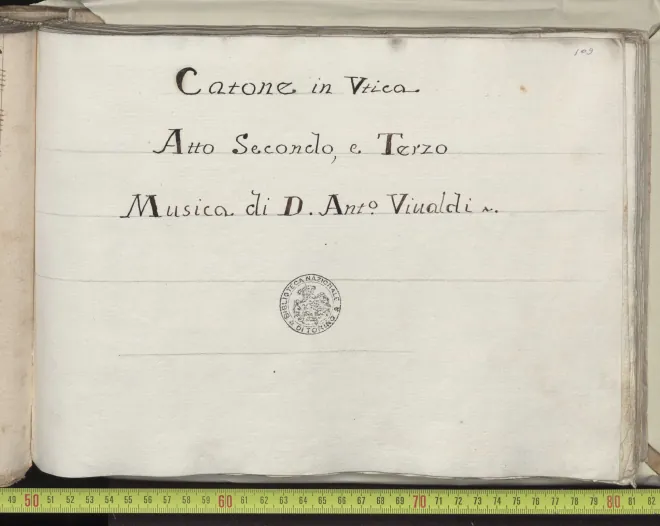 109
Catone in Vtica
Atto Secondo, e Terzo
Musica di D. Anto. Viualdi
BIBLIOTECA NAZIONALE
DI TORINO
49 50 51 52 53 54 55 56 57 58 59 60 61 62 63 64 65 66 67 68 69 70 71 72 73 74 75 76 77 78 79 80 81 82